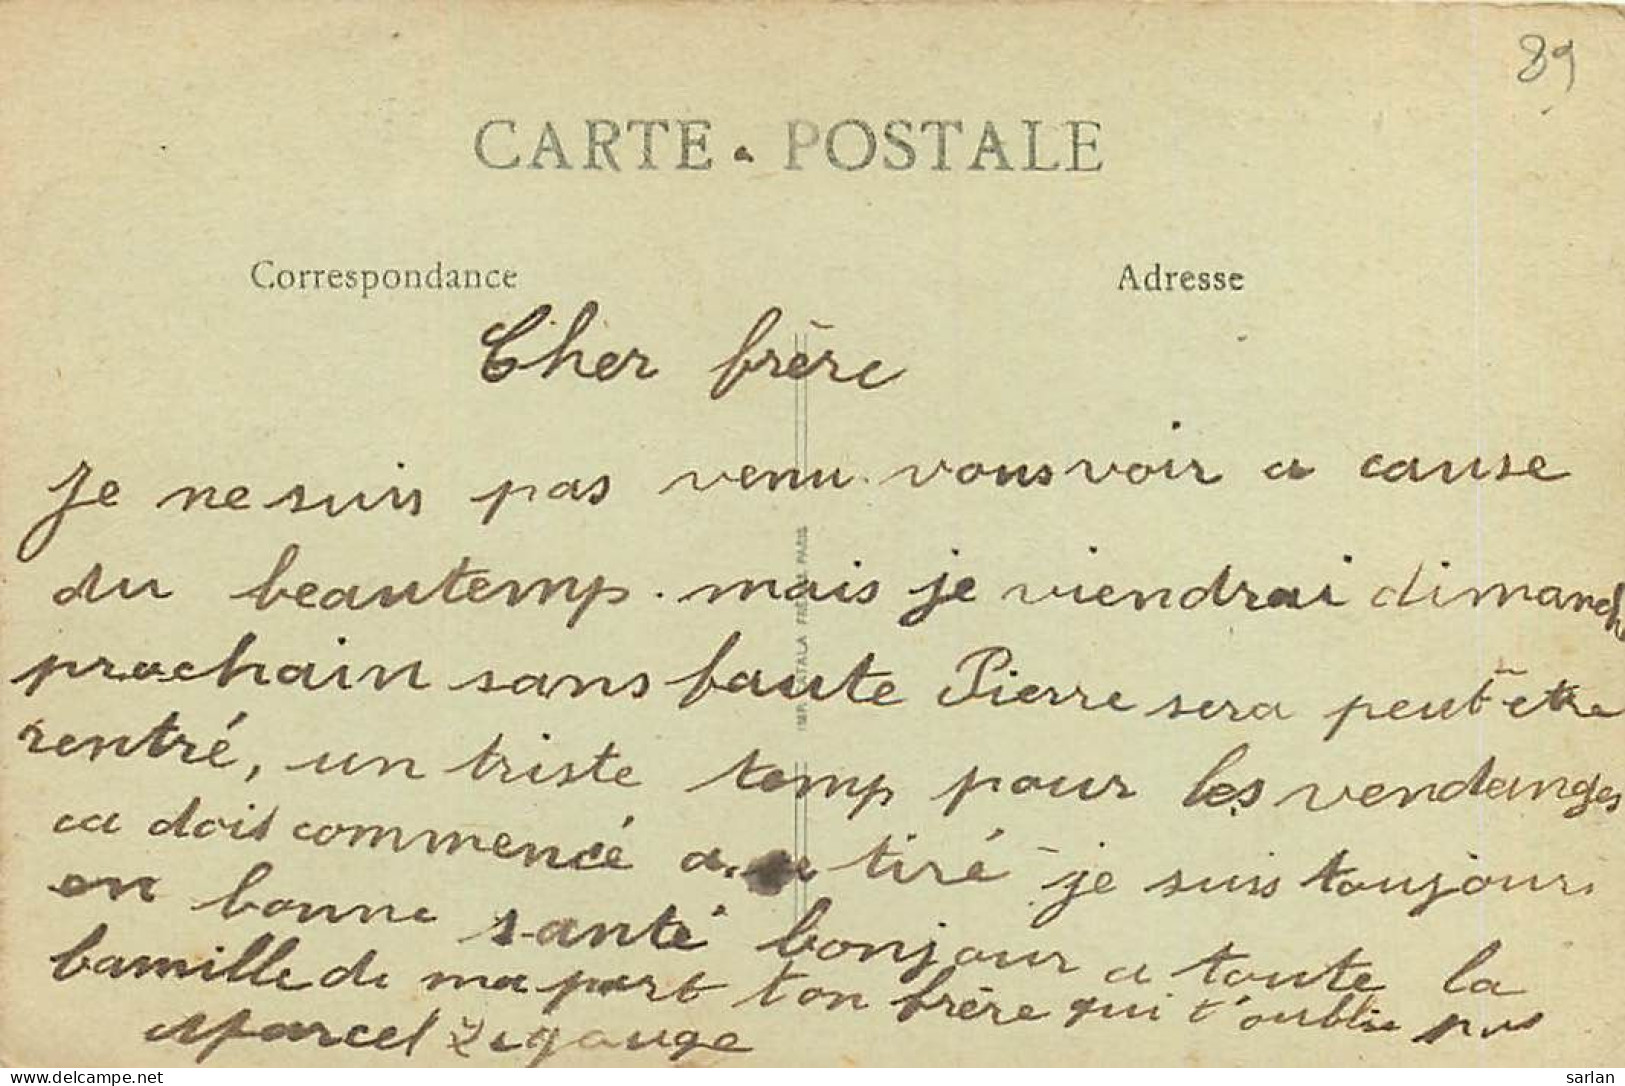 89
CARTE POSTALE
Correspondance
Adresse
Cher frère
Je ne suis pas venu vous voir a cause
du beautemp. mais je viendrai dimanch
prochain sans faute Pierre sera peut-etre
rentré, un triste temp pour les vendanges
ca dois commencé a tiré je suis toujours
en bonne santé bonjour a toute la
famille de ma part ton frère qui t'oublie pas
Marcel
IMP. CATALA FRÈRES PARIS
www.delcampe.net
sarlan